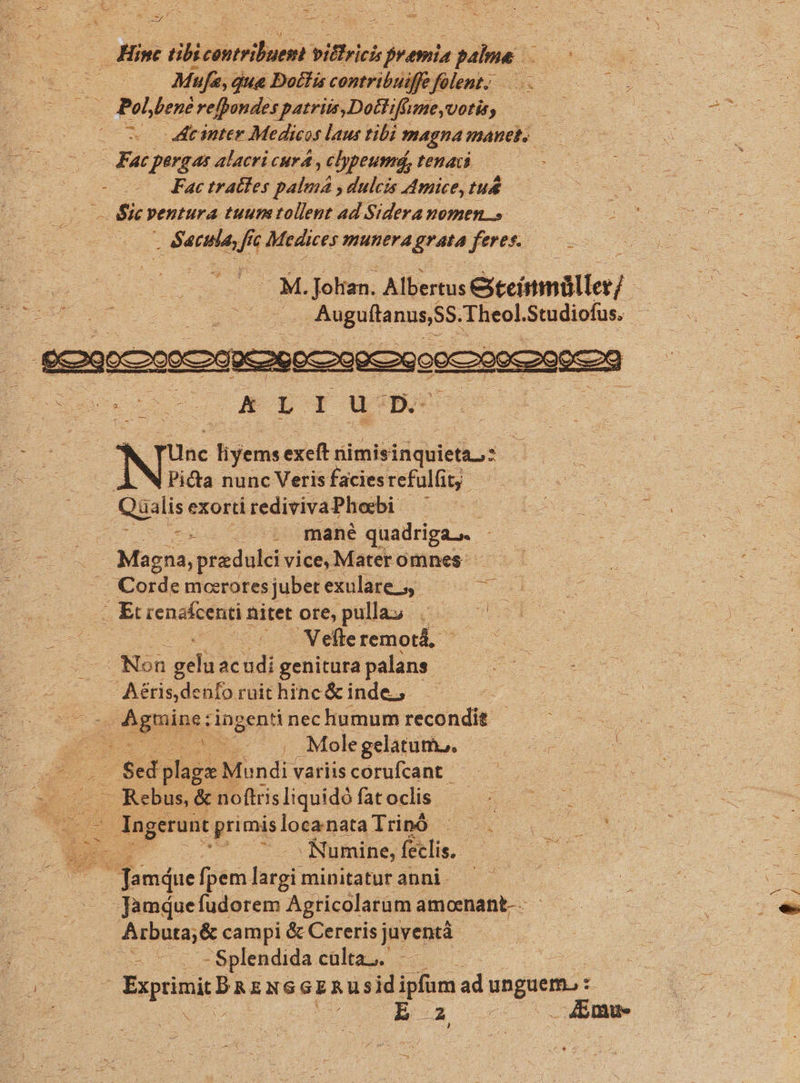 Hinc tibi contribuent victricis præmia palmæ
Musæ, quæ Doctis contribuisse solent.
Pol, benè respondes patriis, Doctissime, votis,
Ac inter Medicos laus tibi magna manet.
Fac pergas alacri curâ, clypeumq́; tenaci
Fac tractes palmâ, dulcis Amice, tuâ
Sic ventura tuum tollent ad Sidera nomen
Sæcula, sic Medices munera grata feres.
M. Johan. Albertus Steinmüller/
Augustanus, SS. Theol. Studiosus.
ALIUD.
NUnc hyems exest nimis inquieta:
Picta nunc Veris facies refulsit,
Qualis exorti rediviva Phœbi
manè quadriga.
Magna, prædulci vice, Mater omnes
Corde mœrores jubet exulare,
Et renascenti nitet ore, pulla
Veste remotâ.
Non gelu ac udi genitura palans
Aëris, denso ruit hinc & inde,
Agmine: ingenti nec humum recondit
Mole gelatum.
Sed plagæ Mundi variis coruscant
Rebus, & nostris liquidò fat oclis
Ingerunt primis loca nata Trinô
Numine, seclis.
Jamque spem largi minitatur anni
Jamque sudorem Agricolarum amœnant
Arbuta, & campi & Cereris juventâ
Splendida culta.
Exprimit BRENGGERus id ipsum ad unguem:
E 2 Æmu-